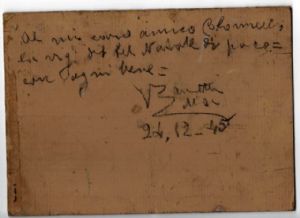 Al mio caro amico Colonnello
la vigi del Natale di pace
con ogni bene =
24, 12 - 45